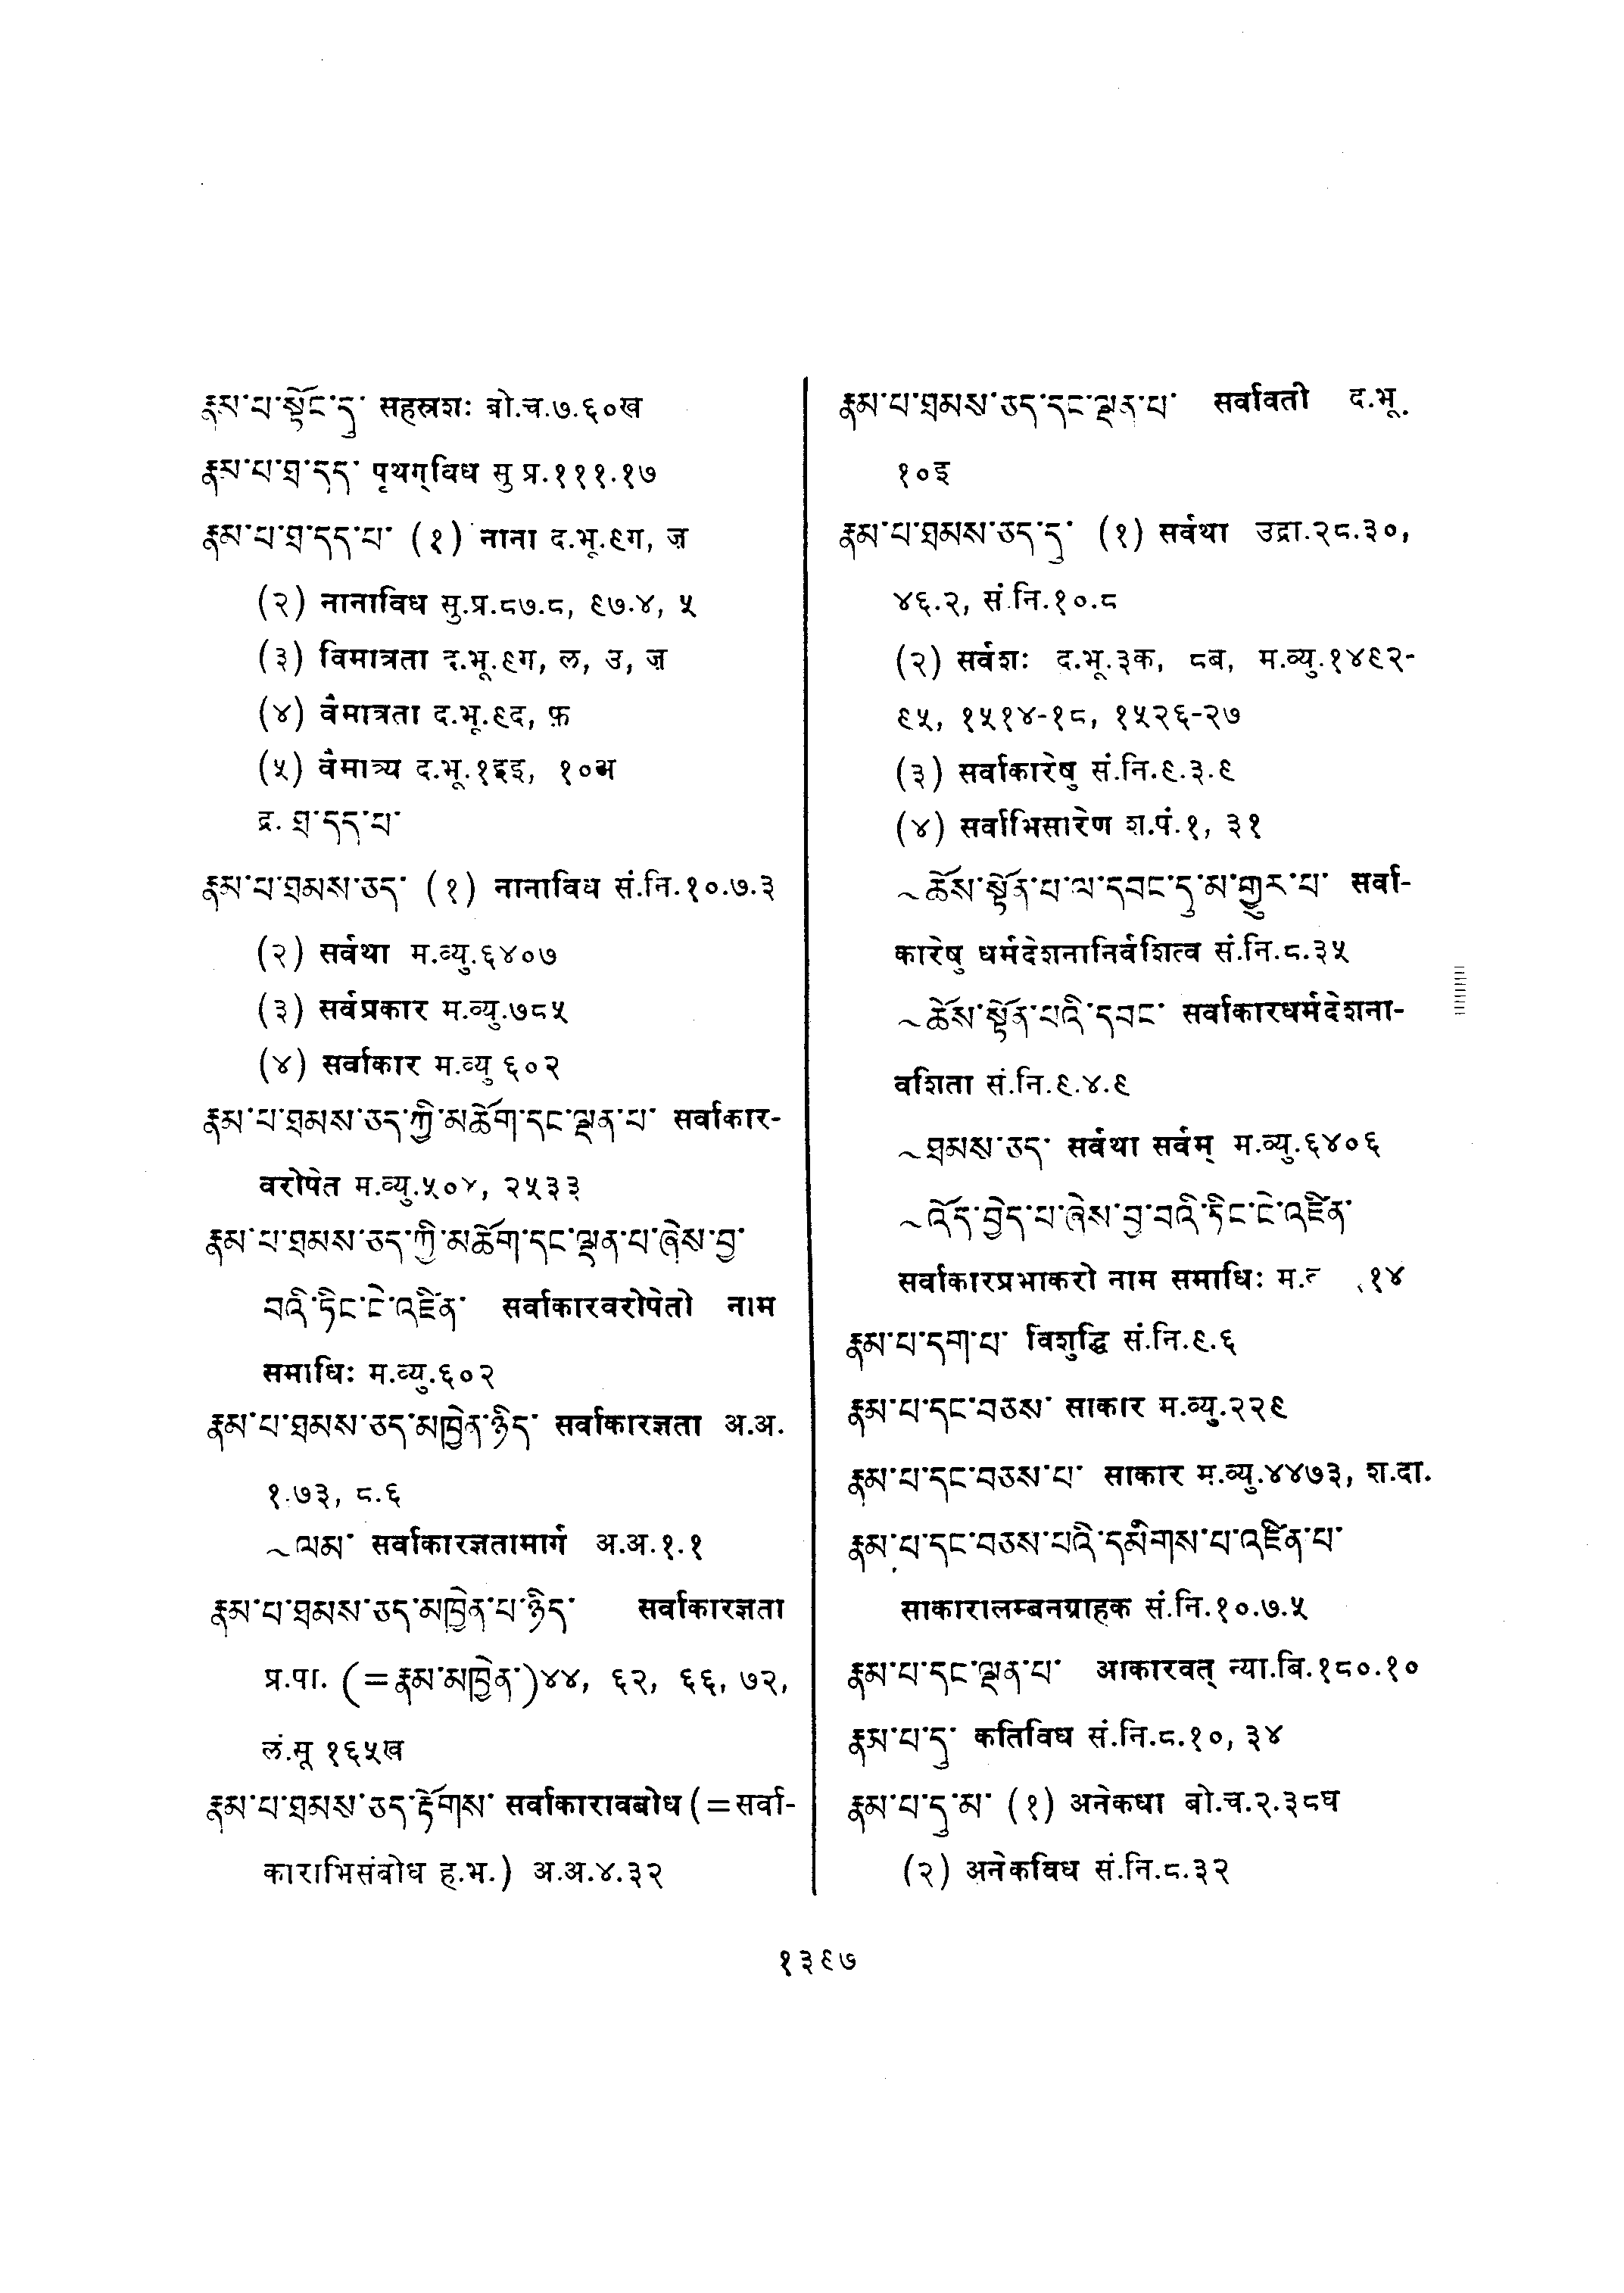 རྣམ་པ་སྟོང་དུ་ सहस्रशः बो.च.७.६०ख
རྣམ་པ་ཐ་དད་ पृथग्विध सु प्र.१११.१७
རྣམ་པ་ཐ་དད་པ་ (१) नाना द.भू.९ग, ज़
(२) नानाविध सु.प्र.८७.८, ९७.४, ५
(३) विमात्रता द.भू.९ग, ल, उ, ज़
(४) वैमात्रता द.भू.९द, फ़
(५) वैमात्र्य द.भू.१इइ, १०अ
द्र. ཐ་དད་པ་
རྣམ་པ་ཐམས་ཅད་ (१) नानाविध सं.नि.१०.७.३
(२) सर्वथा म.व्यु.६४०७
(३) सर्वप्रकार म.व्यु.७८५
(४) सर्वाकार म.व्यु ६०२
རྣམ་པ་ཐམས་ཅད་ཀྱི་མཆོག་དང་ལྡན་པ་ सर्वाकार-
वरोपेत म.व्यु.५०४, २५३३
རྣམ་པ་ཐམས་ཅད་ཀྱི་མཆོག་དང་ལྡན་པ་ཞེས་བྱ་
བའི་ཏིང་ངེ་འཛིན་ सर्वाकारवरोपेतो नाम
समाधिः म.व्यु.६०२
རྣམ་པ་ཐམས་ཅད་མཁྱེན་ཉིད་ सर्वाकारज्ञता अ.अ.
१.७३, ८.६
~ལམ་ सर्वाकारज्ञतामार्ग अ.अ.१.१
རྣམ་པ་ཐམས་ཅད་མཁྱེན་པ་ཉིད་ सर्वाकारज्ञता
प्र.पा. (=རྣམ་མཁྱེན་)४४, ६२, ६६, ७२,
लं.सू १६५ख
རྣམ་པ་ཐམས་ཅད་རྟོགས་ सर्वाकारावबोध (=सर्वा-
काराभिसंबोध ह.भ.) अ.अ.४.३२
རྣམ་པ་ཐམས་ཅད་དང་ལྡན་པ་ सर्वावती द.भू.
१०इ
རྣམ་པ་ཐམས་ཅད་དུ་ (१) सर्वथा उद्रा.२८.३०,
४६.२, सं.नि.१०.८
(२) सर्वशः द.भू.३क, ८ब, म.व्यु.१४९२-
९५, १५१४-१८, १५२६-२७
(३) सर्वाकारेषु सं.नि.९.३.९
(४) सर्वाभिसारेण श.पं.१, ३१
~ཆོས་སྟོན་པ་ལ་དབང་དུ་མ་གྱུར་པ་ सर्वा-
कारेषु धर्मदेशनानिर्वशित्व सं.नि.८.३५
~ཆོས་སྟོན་པའི་དབང་ सर्वाकारधर्मदेशना-
वशिता सं.नि.९.४.९
~ཐམས་ཅད་ सर्वथा सर्वम् म.व्यु.६४०६
~འོད་བྱེད་པ་ཞེས་བྱ་བའི་ཏིང་ངེ་འཛིན་
सर्वाकारप्रभाकरो नाम समाधिः म. .१४
རྣམ་པ་དག་པ་ विशुद्धि सं.नि.९.६
རྣམ་པ་དང་བཅས་ साकार म.व्यु.२२९
རྣམ་པ་དང་བཅས་པ་ साकार म.व्यु.४४७३, श.दा.
རྣམ་པ་དང་བཅས་པའི་དམིགས་པ་འཛིན་པ་
साकारालम्बनग्राहक सं.नि.१०.७.५
རྣམ་པ་དང་ལྡན་པ་ आकारवत् न्या.बि.१८०.१०
རྣམ་པ་དུ་ कतिविध सं.नि.८.१०, ३४
རྣམ་པ་དུ་མ་ (१) अनेकधा बो.च.२.३८घ
(२) अनेकविध सं.नि.८.३२
१३९७